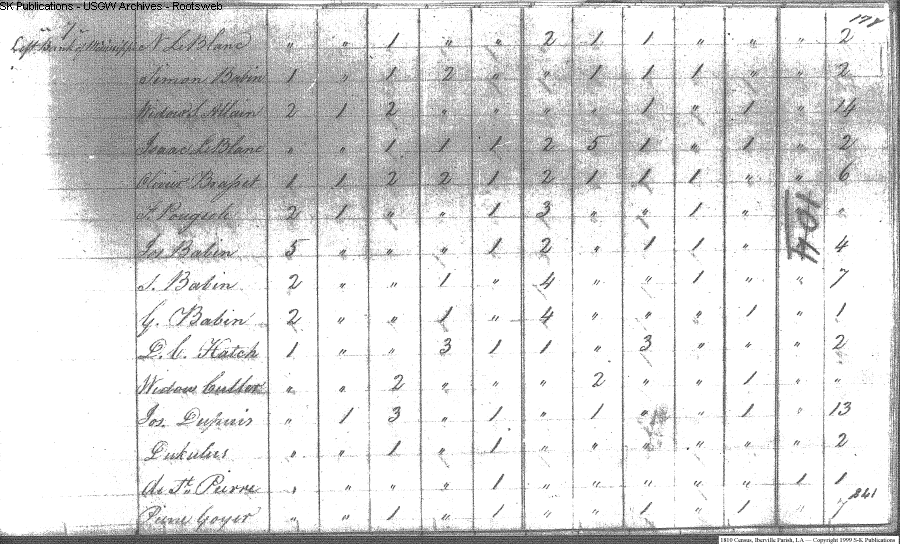 SK Publications - USGW Archives - Rootsweb
178
Left Bank of Mississippi N. LeBlanc " " 1 " " 2 1 1 " " " 2
Simon Babin 1 " 1 2 " " 1 1 1 " " 2
Widow S. Allain 2 1 2 " " " " 1 " 1 " 14
Isaac LeBlanc " " 1 1 1 2 5 1 " 1 " 2
Oliver Brasset 1 1 2 2 1 2 1 1 1 " " 6
2 1 " " 1 3 " " 1 " "
Jos Babin 5 " " " 1 2 " 1 1 " 4
J. Babin 2 " " 1 " 4 " " 1 " " 7
G. Babin 2 " " 1 " 4 " " " 1 " 1
D. C. Hatch 1 " " 3 1 1 " 3 " " " 2
Widow Cutler " " 2 " " " 2 " " 1 " "
Jos. Dupuis " 1 3 " 1 " 1 " " 1 " 13
" " 1 " 1 " " " " " " 2
St. Pierre " " " " 1 " " " " " 1 1
Pierre Goyer " " 1 " 1 " " 1 " 1 " 7
841
1041
1810 Census, Iberville Parish, LA — Copyright 1999 S-K Publications